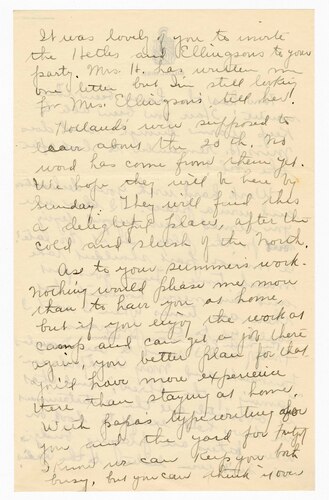 It was lovely of you to invite
the Hetles and Ellingsons to your
party. Mrs. H. has written me
one letter but I'm still looking
for Mrs. Ellingson's
Hollands were supposed to
leave about the 20th. No
word has come from them yet.
We hope they will be here by
Sunday. They will find this
a delightful place, after the
cold and slush of the North.
As to your summer's work.
Nothing would please me more
than to have you at home,
but if you enjoy the work at
camp and can get a job there
again, you better plan for that
You'll have more experience
there than staying at home.
With papa's typewriting for
you and the yard for
I know we can keep you both
busy, but you can think it over